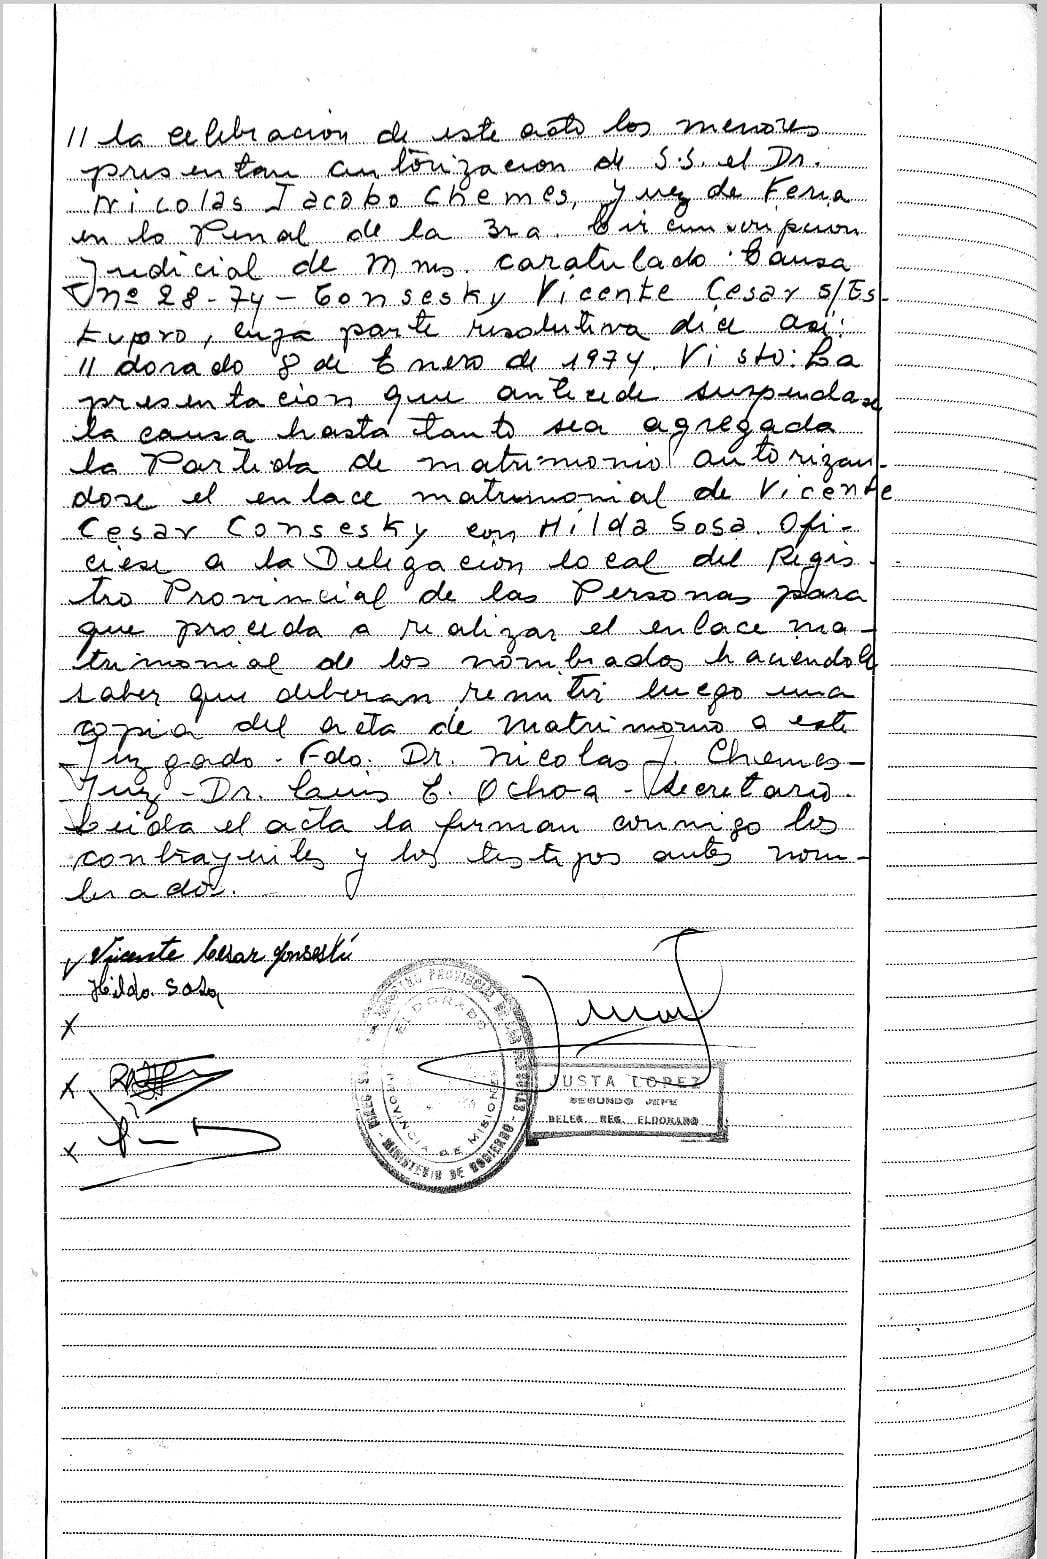 // la celebración de este acto los menores
presentan autorización de S.S. el Dr.
Nicolas Jacobo Chemes, Juez de Feria
en lo Penal de la 3ra. Circunscripcion
Judicial de Mnes. caratulado Causa
nº 28-74 - Consesky Vicente Cesar s/Es-
tupro, cuya parte resolutiva dice así:
// dorado 8 de Enero de 1974. Visto: La
presentación que antecede suspendase
la causa hasta tanto sea agregada
la Partida de matrimonio autorizan-
dose el enlace matrimonial de Vicente
Cesar Consesky con Hilda Sosa. Ofi-
ciese a la Delegación local del Regis-
tro Provincial de las Personas para
que proceda a realizar el enlace ma-
trimonial de los nombrados haciendole
saber que deberan remitir luego una
copia del acta de matrimonio a este
Juzgado. Fdo. Dr. Nicolas J. Chemes-
Juez - Dr. Luis E. Ochoa - Secretario.
Leida el acta la firman conmigo los
contrayentes y los testigos antes nom-
brados.
Vicente Cesar Conseski
Hilda Sosa
X
X
X
REGISTRO PROVINCIAL DE LAS PERSONAS
ELDORADO
PROVINCIA DE MISIONES
MINISTERIO DE GOBIERNO
JUSTA LOPEZ
SEGUNDO JEFE
DELEG. REG. ELDORADO